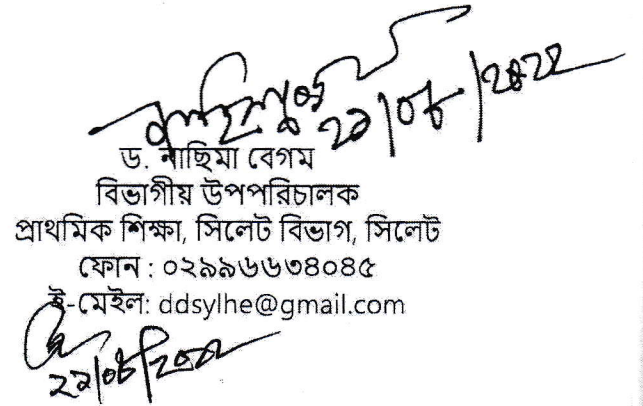 ড. নাছিমা বেগম
বিভাগীয় উপপরিচালক
প্রাথমিক শিক্ষা, সিলেট বিভাগ, সিলেট
ফোন : ০২৯৯৬৬৩৪০৪৫
ই-মেইল: ddsylhe@gmail.com